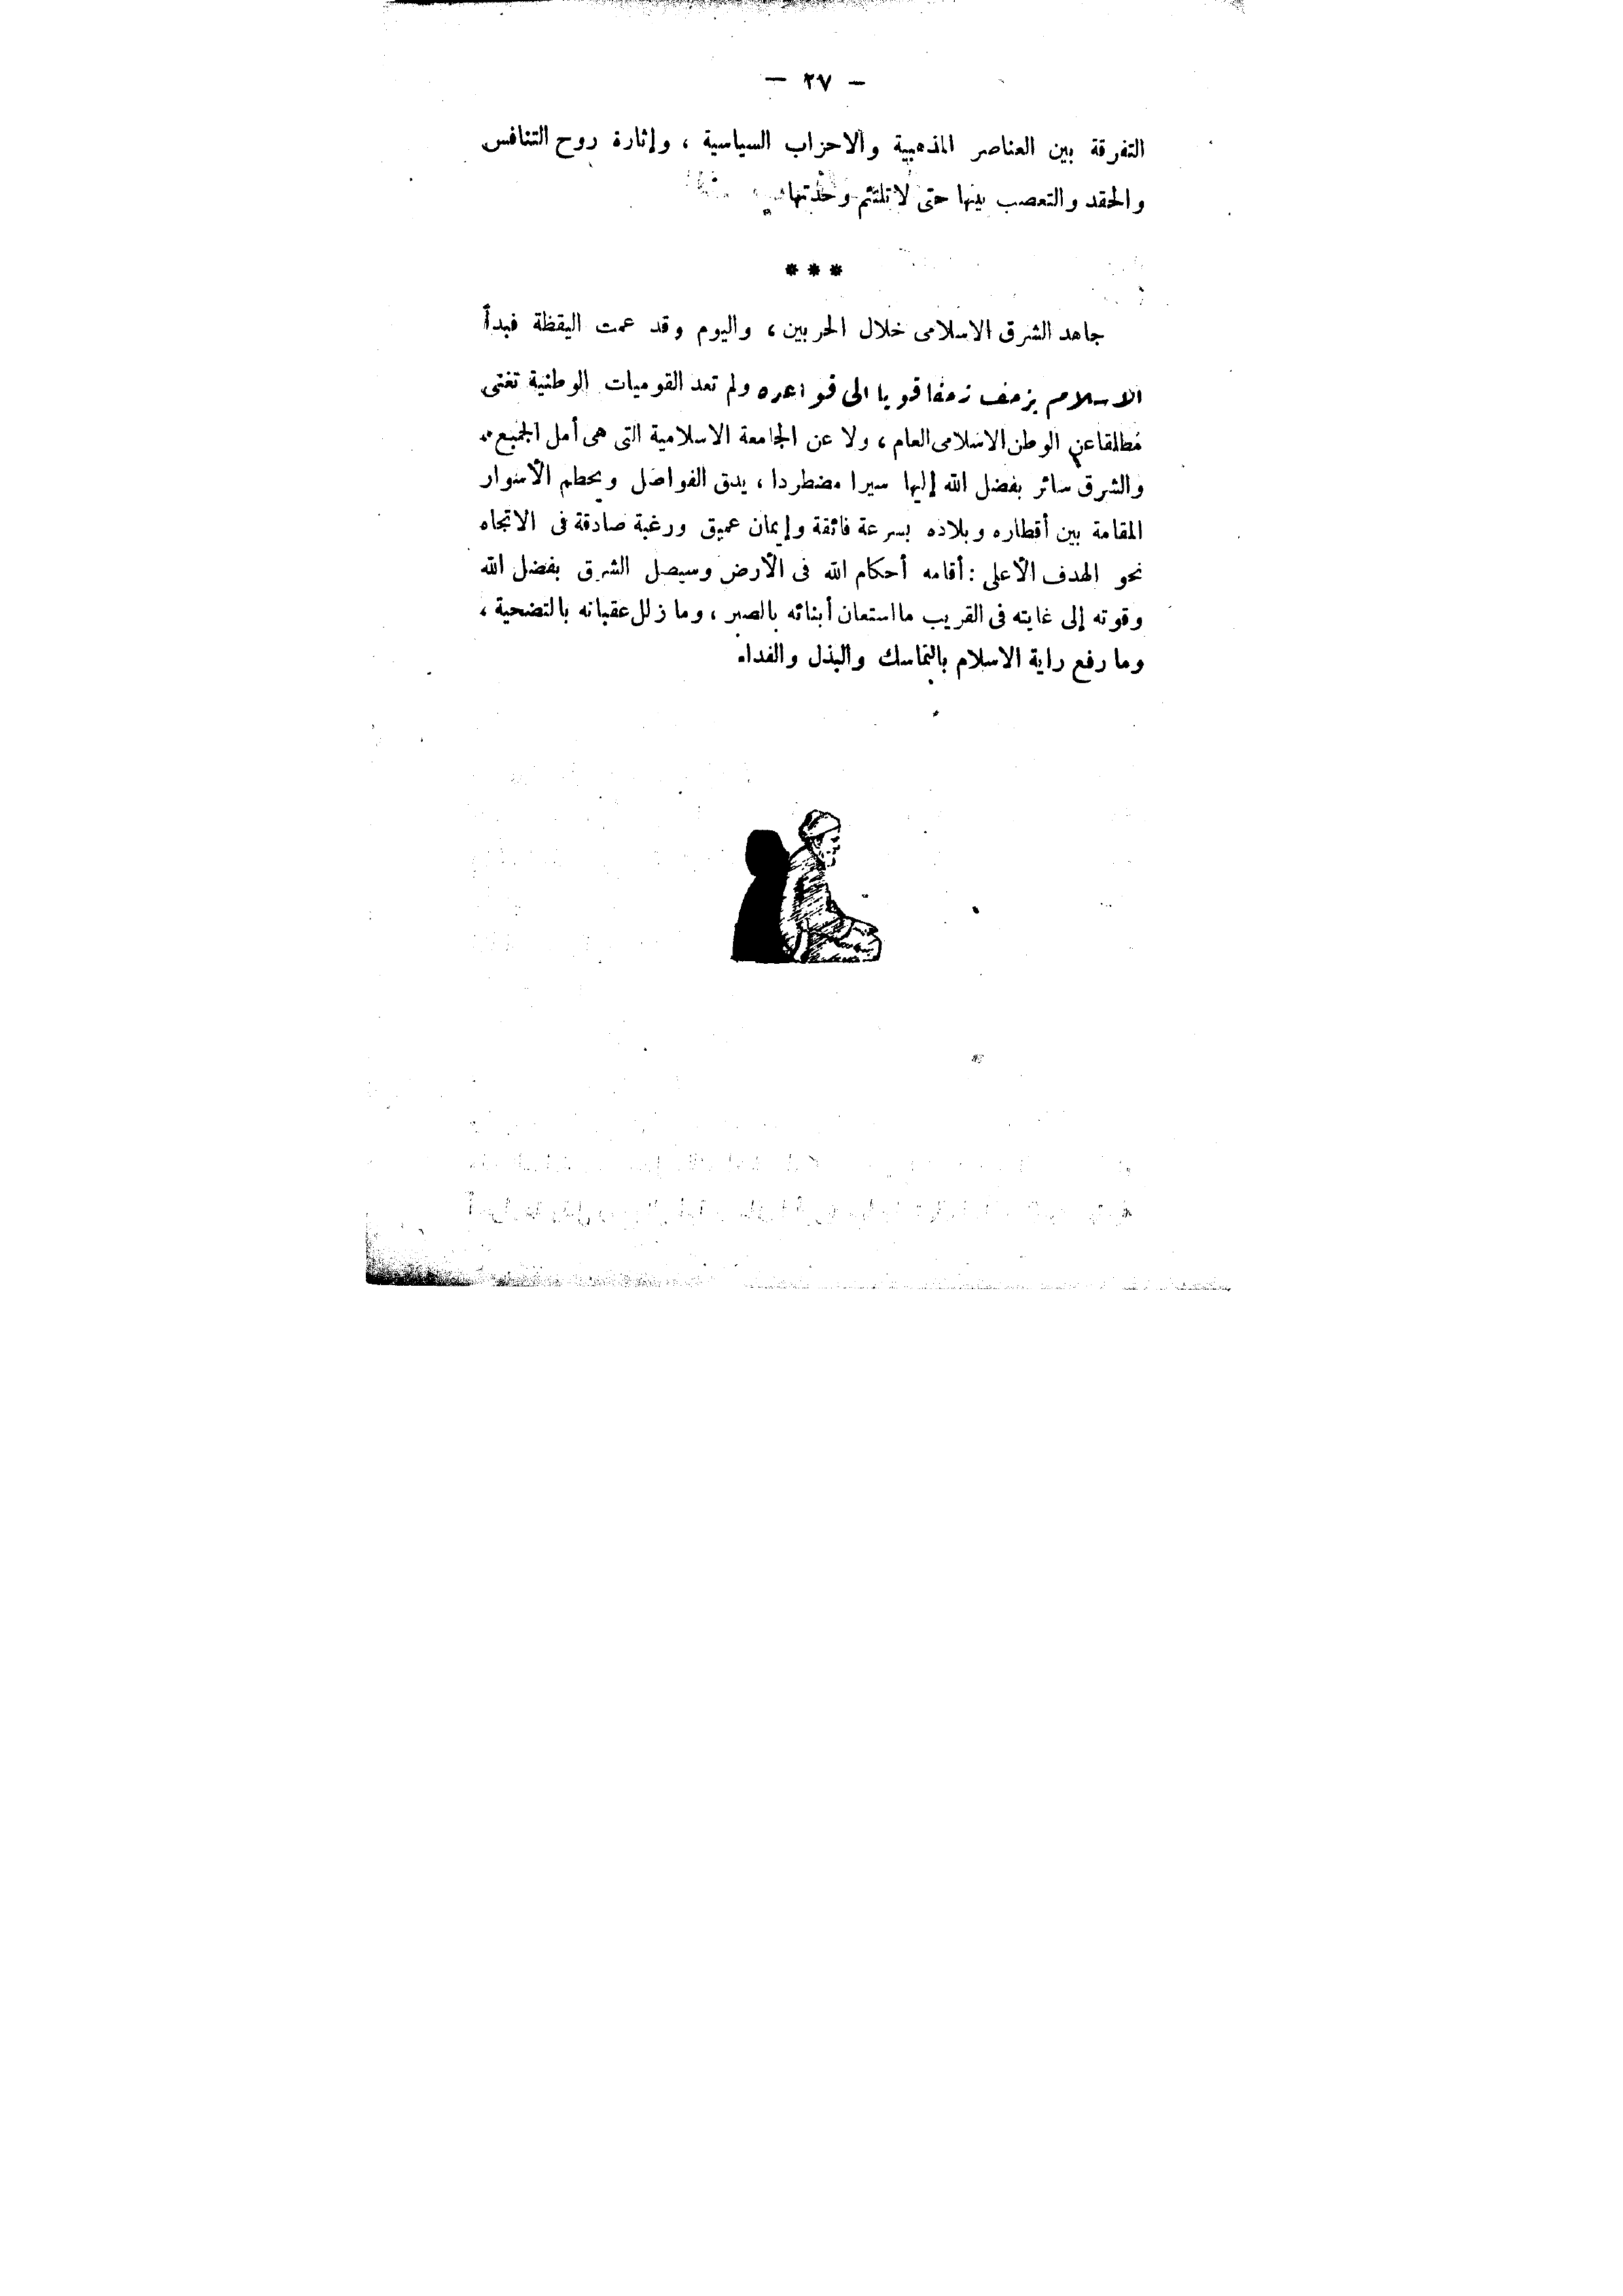 — ٢٧ —
التفرقة بين العناصر المذهبية والاحزاب السياسية ، وإثارة روح التنافس
والحقد والتعصب بينها حتى لا تلتئم وحدتها
* * *
جاهد الشرق الاسلامى خلال الحربين ، واليوم وقد عمت اليقظة فبدأ
الاسلام يزحف زحفا قويا الى قواعده ولم تعد القوميات الوطنية تغنى
مطلقا عن الوطن الاسلامى العام ، ولا عن الجامعة الاسلامية التى هى أمل الجميع ..
والشرق سائر بفضل الله إليها سيرا مضطردا ، يدق الفواصل ويحطم الأسوار
المقامة بين أقطاره وبلاده بسرعة فائقة وإيمان عميق ورغبة صادقة فى الاتجاه
نحو الهدف الأعلى : أقامه أحكام الله فى الأرض وسيصل الشرق بفضل الله
وقوته إلى غايته فى القريب ما استعان أبنائه بالصبر ، وما زلل عقباته بالتضحية ،
وما رفع راية الاسلام بالتماسك والبذل والفداء